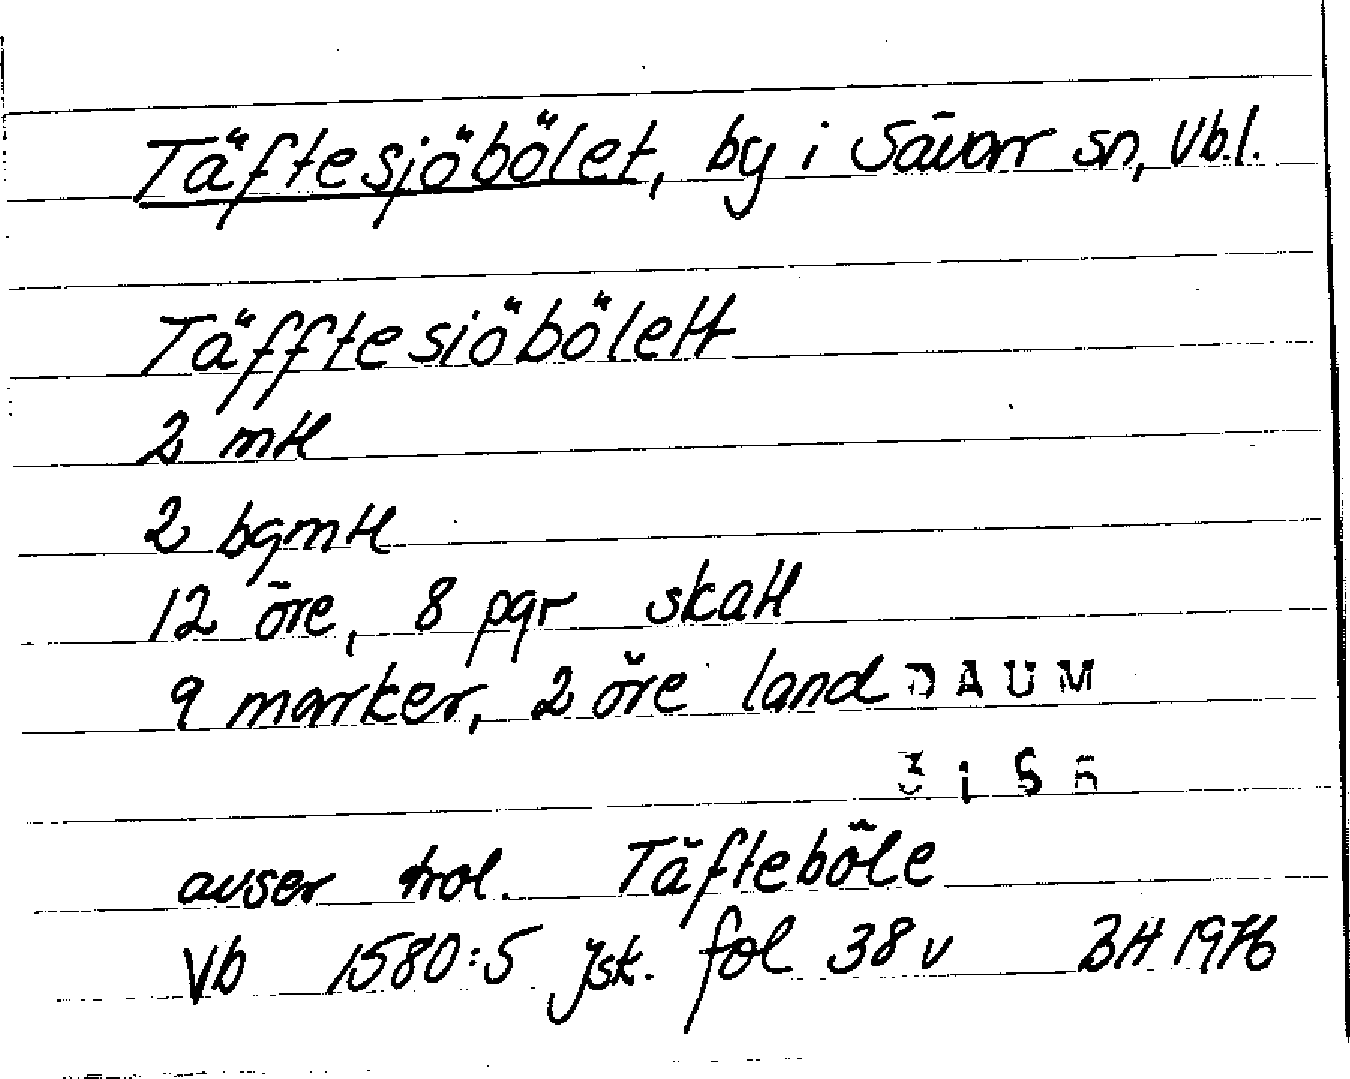 Täftesjöbölet, by i Sävar sn, Vb.l.
Täfftesiöbölett
2 mtl
2 bgmtl
12 öre, 8 pgr skatt
9 marker, 2 öre land DAUM
avser trol. Täfteböle
Vb 1580:5 Jsk. fol 38 v BH 1976